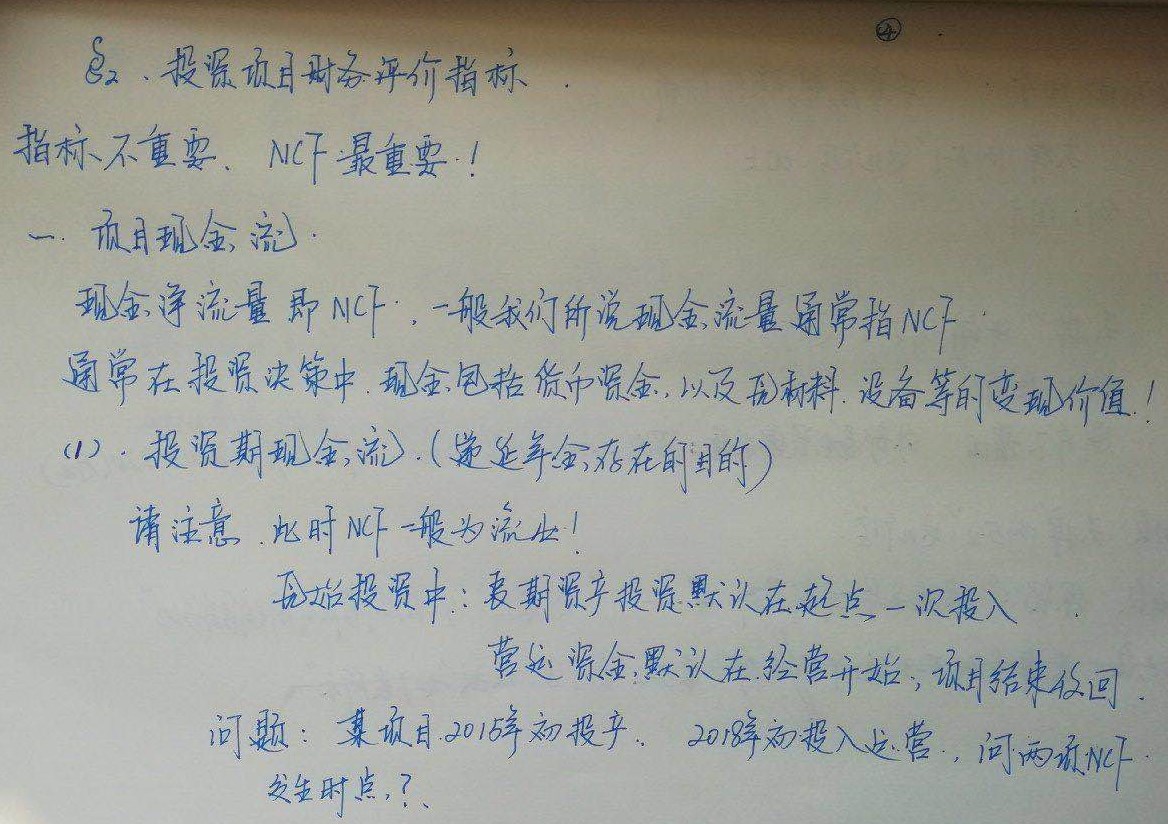 ④
§2、投资项目财务评价指标.
指标不重要、NCF最重要!
一. 项目现金流.
现金净流量即NCF,一般我们所说现金流量通常指NCF.
通常在投资决策中.现金包括货币资金,以及原材料.设备等的变现价值!
(1).投资期现金流.(递延年金存在的目的)
请注意.此时NCF一般为流出!
原始投资中:长期资产投资默认在起点一次投入.
营运资金默认在经营开始,项目结束收回.
问题:某项目2015年初投产、2018年初投入运营,问两项NCF
发生时点?